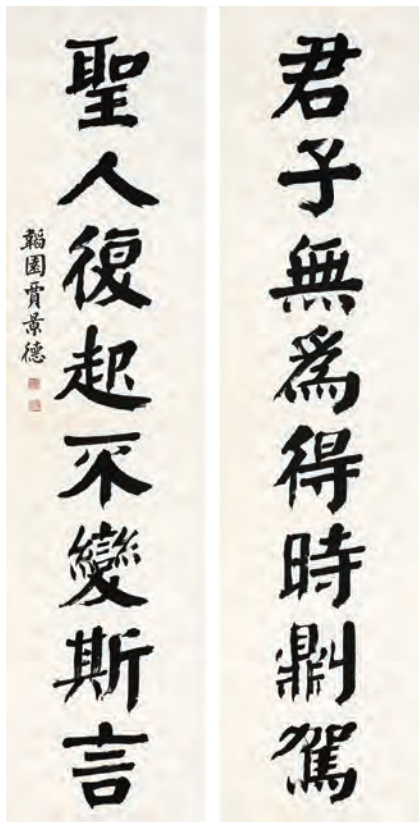 君子無爲得時則駕
聖人復起不變斯言
韜園賈景德